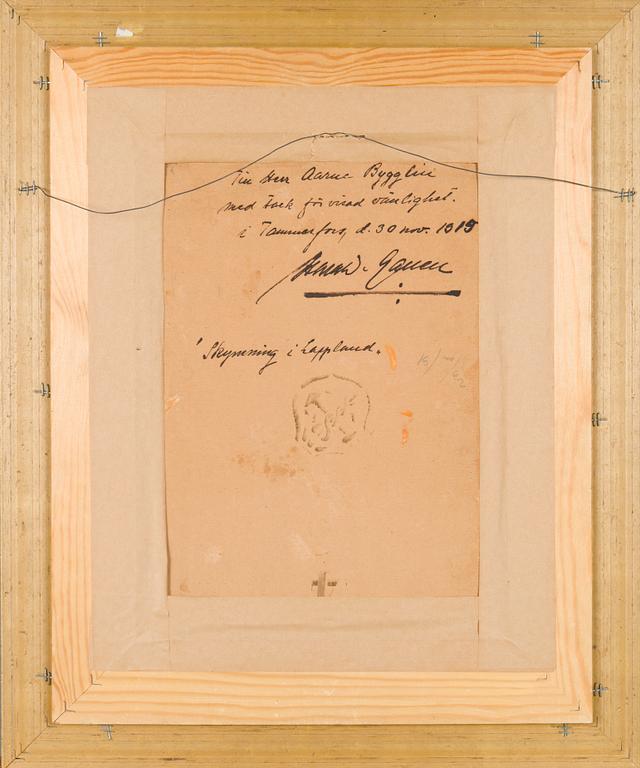 Till Herr Aarne Bygglin
med tack för visad vänlighet.
i Tammerfors, d. 30 nov. 1915
Gallen
'Skymning i Lappland.